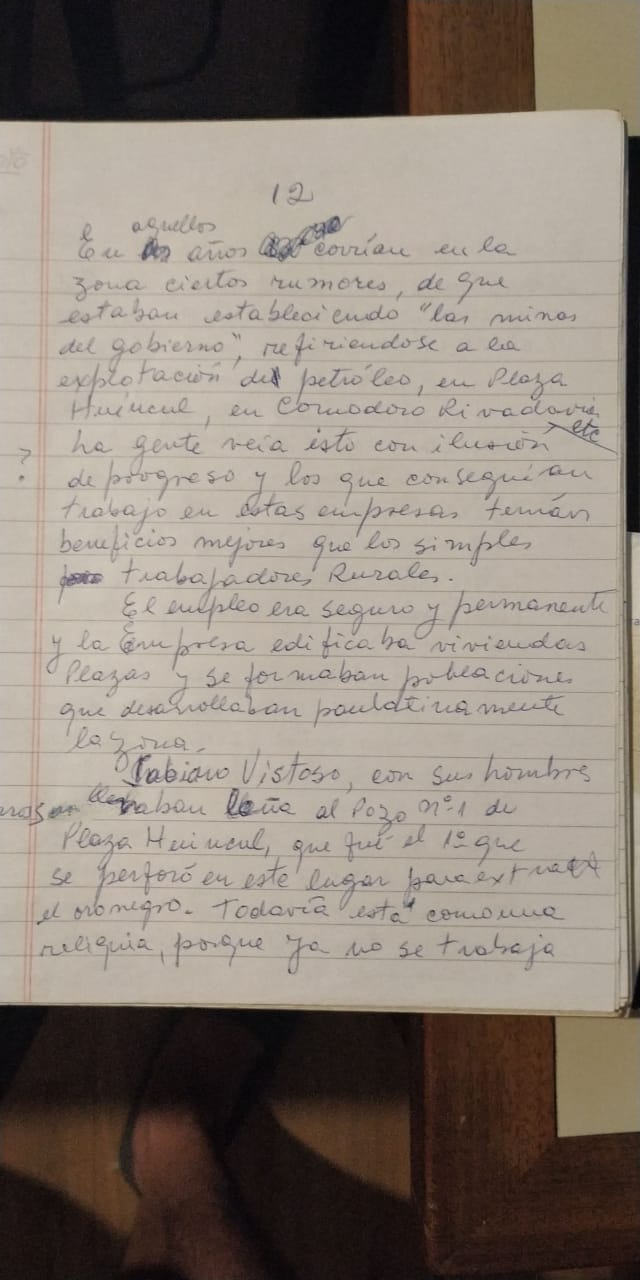 12
e aquellos
En años corrían en la
zona ciertos rumores, de que
estaban estableciendo "las minas
del gobierno", refiriendose a la
explotación del petróleo, en Plaza
Huincul, en Comodoro Rivadavia
etc
La gente veía esto con ilusión
? de progreso y los que conseguían
trabajo en estas empresas tenían
beneficios mejores que los simples
trabajadores Rurales.
El empleo era seguro y permanente
y la Empresa edificaba viviendas
Plazas y se formaban poblaciones
que desarrollaban paulatinamente
la zona.
Fabiano Vistoso, con sus hombres
llevaban leña al Pozo nº 1 de
Plaza Huincul, que fué el 1º que
se perforó en este lugar para extraer
el oro negro. Todavía está como una
reliquia, porque ya no se trabaja